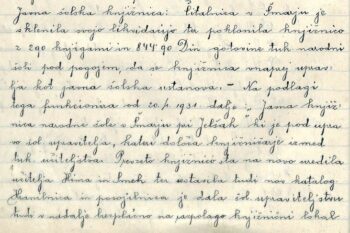 Javna šolska knjižnica: Čitalnica v Šmarju je
sklenila svojo likvidacijo ter poklonila knjižnico
z 290 knjigami in 844.90 Din gotovine tuk. narodni
šoli pod pogojem, da se knjižnica vnaprej uprav-
lja kot javna šolska ustanova. – Na podlagi
tega funkcionira od 20./ 1931 dalje „Javna knjiž-
nica narodne šole v Šmarju pri Jelšah“ ki je pod upra-
vo šol. upravitelja, kateri določa knjižničarje izmed
tuk. učiteljstva. Prevzeto knjižnico sta na novo uredila
učitelja Hina in Smeh ter sestavila tudi nov katalog.
Hranilnica in posojilnica je dala šol. upraviteljstvu
tudi v nadalje brezplačno na razpolago knjižnični lokal